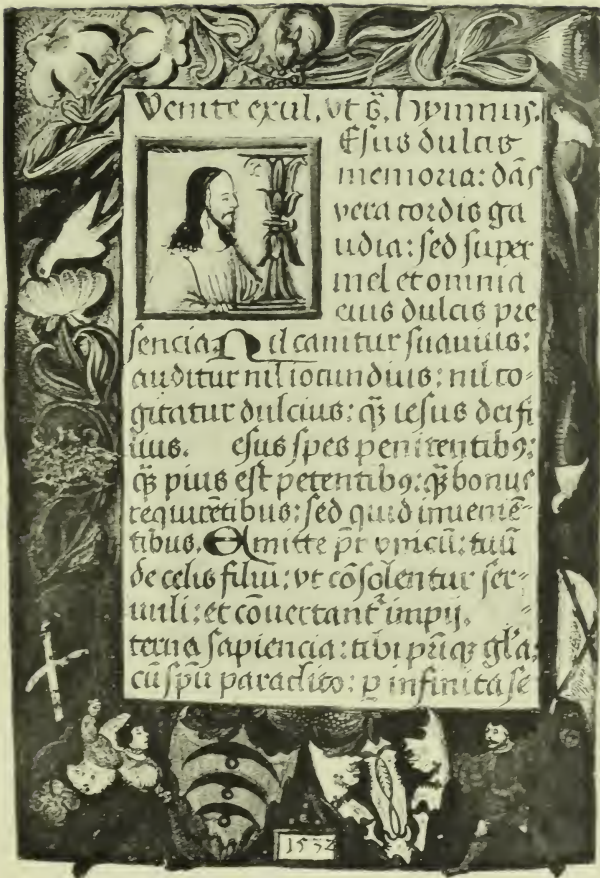 Venite exul. vt s̄. hymnus.
Esus dulcis
memoria: dās
vera cordis ga
udia: sed super
mel et omnia
eius dulcis pre
sencia Nil canitur suauius:
auditur nil iocundius: nil co-
gitatur dulcius: q̄ꝫ iesus deifi
uus. esus spes penitentibꝰ:
q̄ꝫ pius est petentibꝰ: q̄ꝫ bonus
requirētibus: sed quid inueniē-
tibus. Emitte pr̄ vnicū: tuū
de celis filiū: vt cōsolentur ser-
uuli: et cōuertant᷑ impij.
terna sapiencia: tibi pr̄iqꝫ gl̄a:
cū sp̄u paraclito: ꝑ infinita se
1532